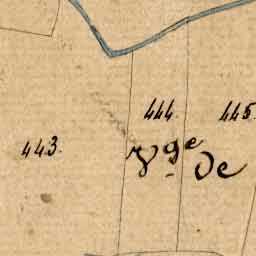 444
445.
443.
Vge De